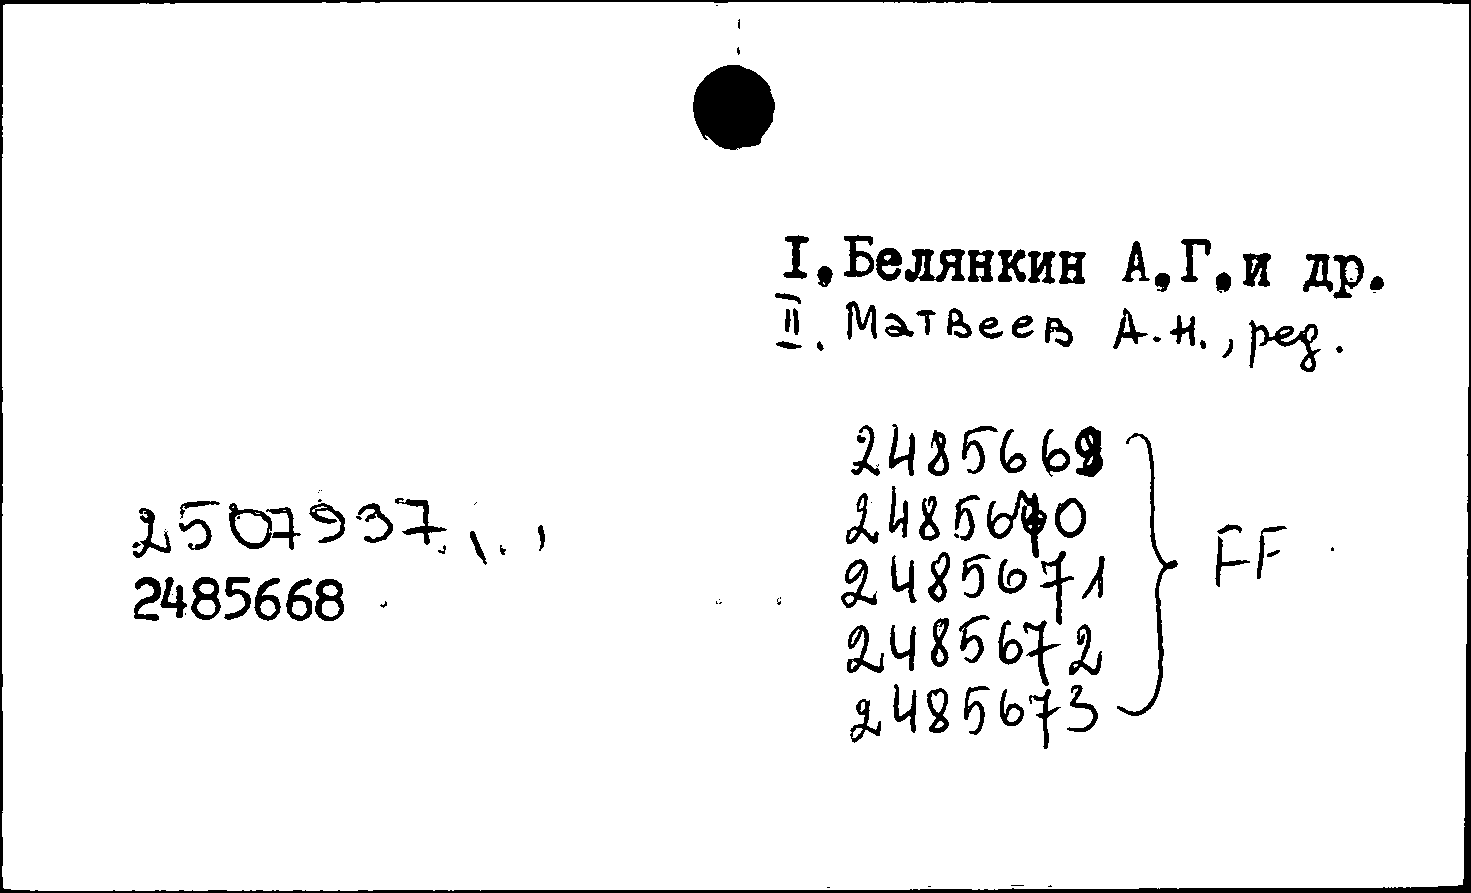 I. Белянкин А.Г. и др.
II. Матвеев А.Н., ред.
2485669
2485670
2485671
2485672
2485673
FF
2507937
2485668